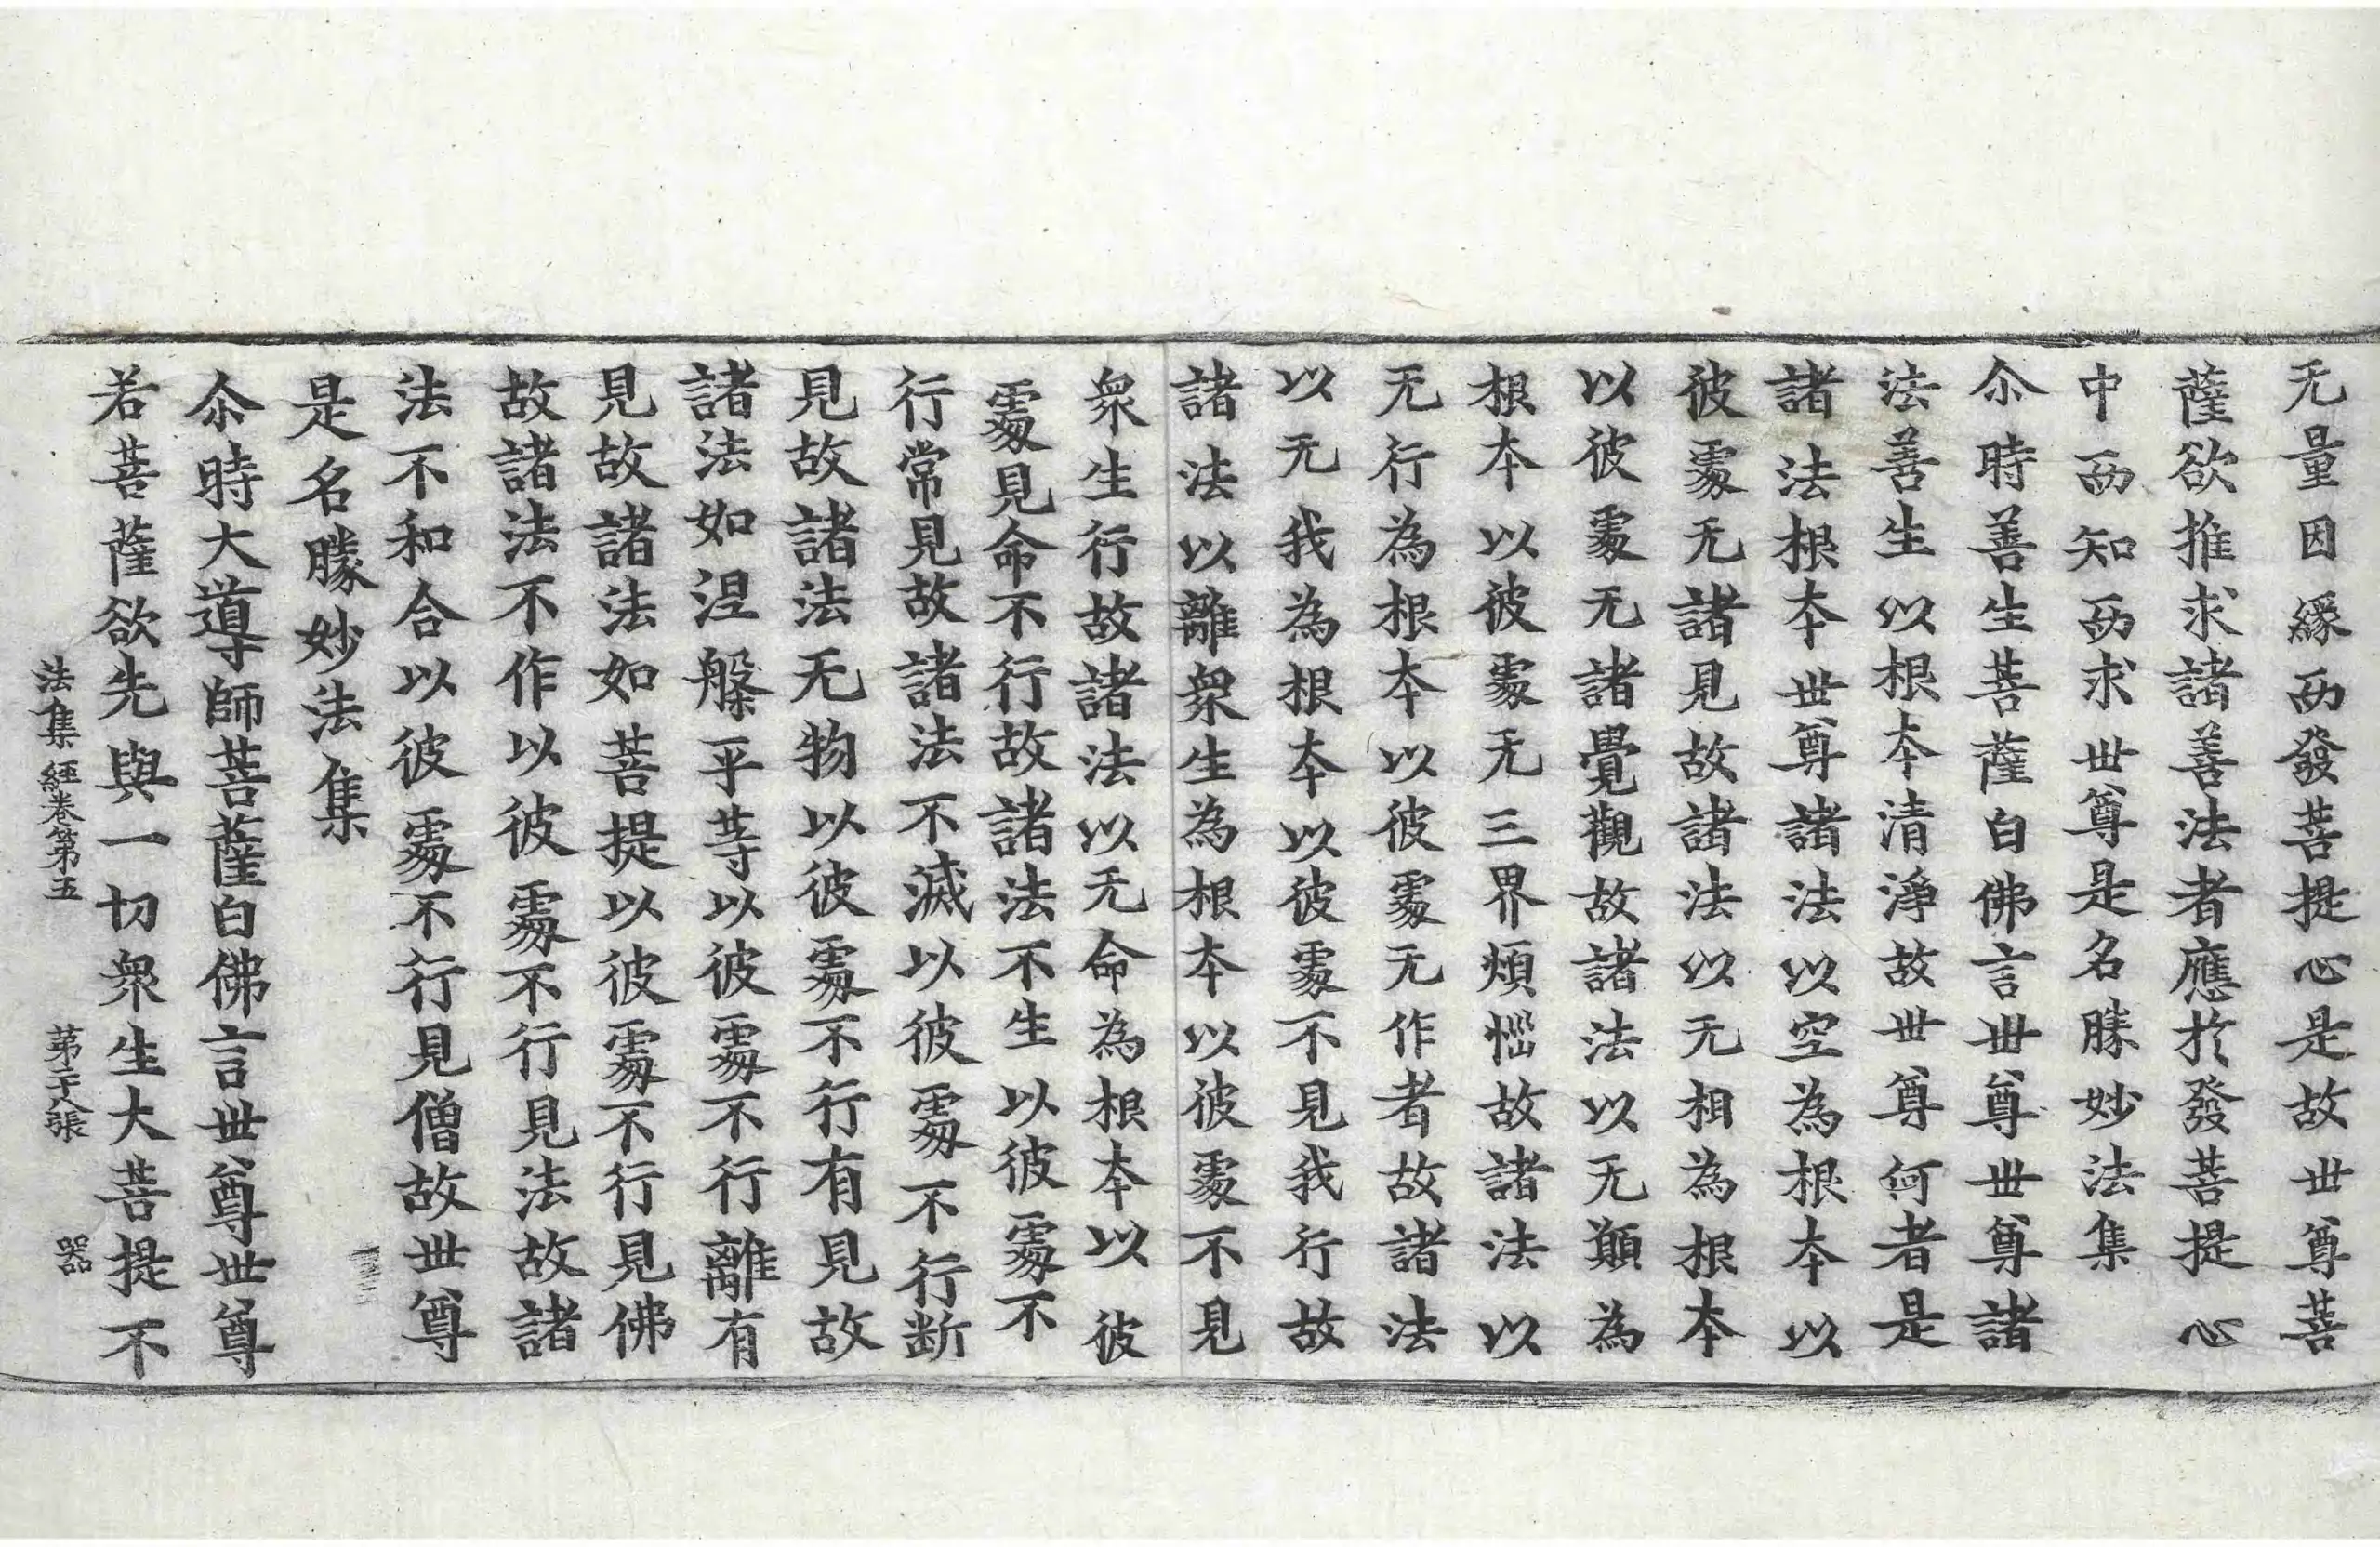 无量因緣而發菩提心是故世尊菩
薩欲推求諸善法者應於發菩提心
中而知而求世尊是名勝妙法集
尒時善生菩薩白佛言世尊世尊諸
法善生以根本清淨故世尊何者是
諸法根本世尊諸法以空為根本以
彼處无諸見故諸法以无相為根本
以彼處无諸覺觀故諸法以无願為
根本以彼處无三界煩惱故諸法以
无行為根本以彼處无作者故諸法
以无我為根本以彼處不見我行故
諸法以離衆生為根本以彼處不見
衆生行故諸法以无命為根本以彼
處見命不行故諸法不生以彼處不
行常見故諸法不滅以彼處不行断
見故諸法无物以彼處不行有見故
諸法如涅槃平等以彼處不行離有
見故諸法如菩提以彼處不行見佛
故諸法不作以彼處不行見法故諸
法不和合以彼處不行見僧故世尊
是名勝妙法集
尒時大導師菩薩白佛言世尊世尊
若菩薩欲先與一切衆生大菩提不
法集經卷第五 第二十八張 器